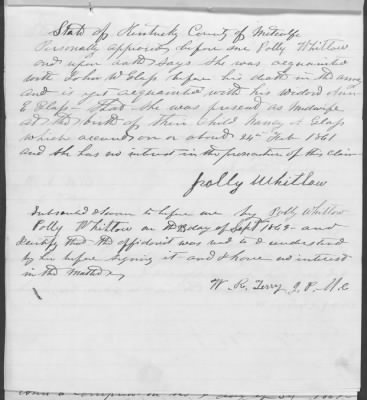 State of Kentucky County of Metcalfe
Personally appeared before me Polly Whitlow
and upon oath says She was acquainted
with John W Glass before his death in the army
and is yet acquainted with his widow Ann
E Glass - That She was present as Midwife
at the birth of their Child Nancy A Glass
which occurred on or about 24th Feb 1861
and She has no interest in the prosecution of this claim
Polly Whitlow
Subscribed & sworn to before me by Polly Whitlow
Polly Whitlow on the day of Sept 1865 and
I certify that the affidavit was red to & understood
by her before signing it and I have no interest
in the matter
W. R. Terry J. P. M. C